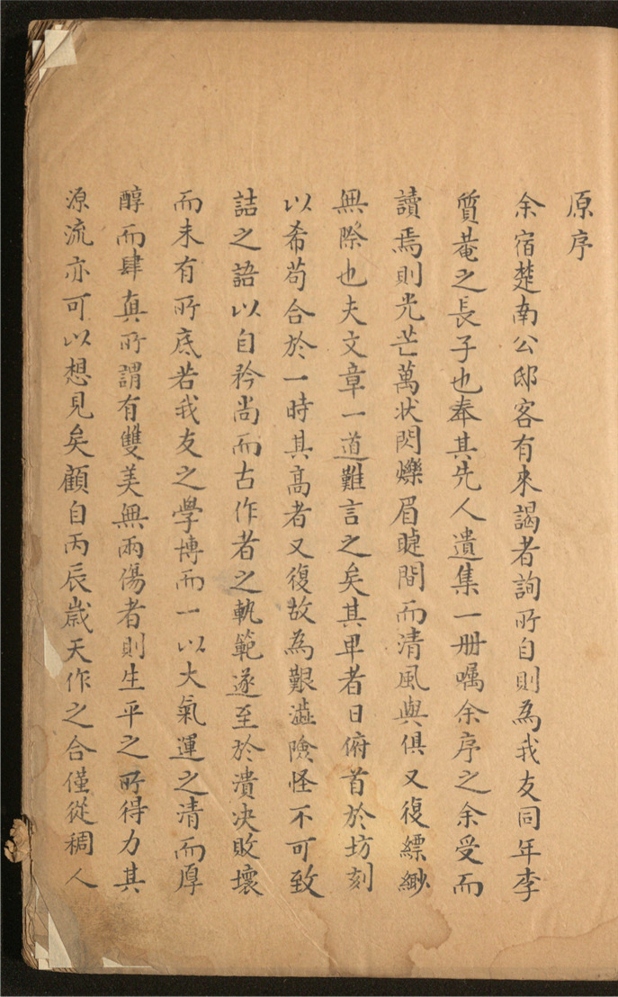 原序
余宿楚南公邸客有來謁者詢所自則為我友同年李
質菴之長子也奉其先人遺集一册囑余序之余受而
讀焉則光芒萬狀閃爍眉睫間而清風與俱又復縹緲
無際也夫文章一道難言之矣其卑者日俯首於坊刻
以希苟合於一時其高者又復故為艱澁險怪不可致
詰之語以自矜尚而古作者之軌範遂至於潰决敗壞
而未有所底若我友之學博而一以大氣運之清而厚
醇而肆真所謂有雙美無兩傷者則生平之所得力其
源流亦可以想見矣顧自丙辰歲天作之合僅從稠人